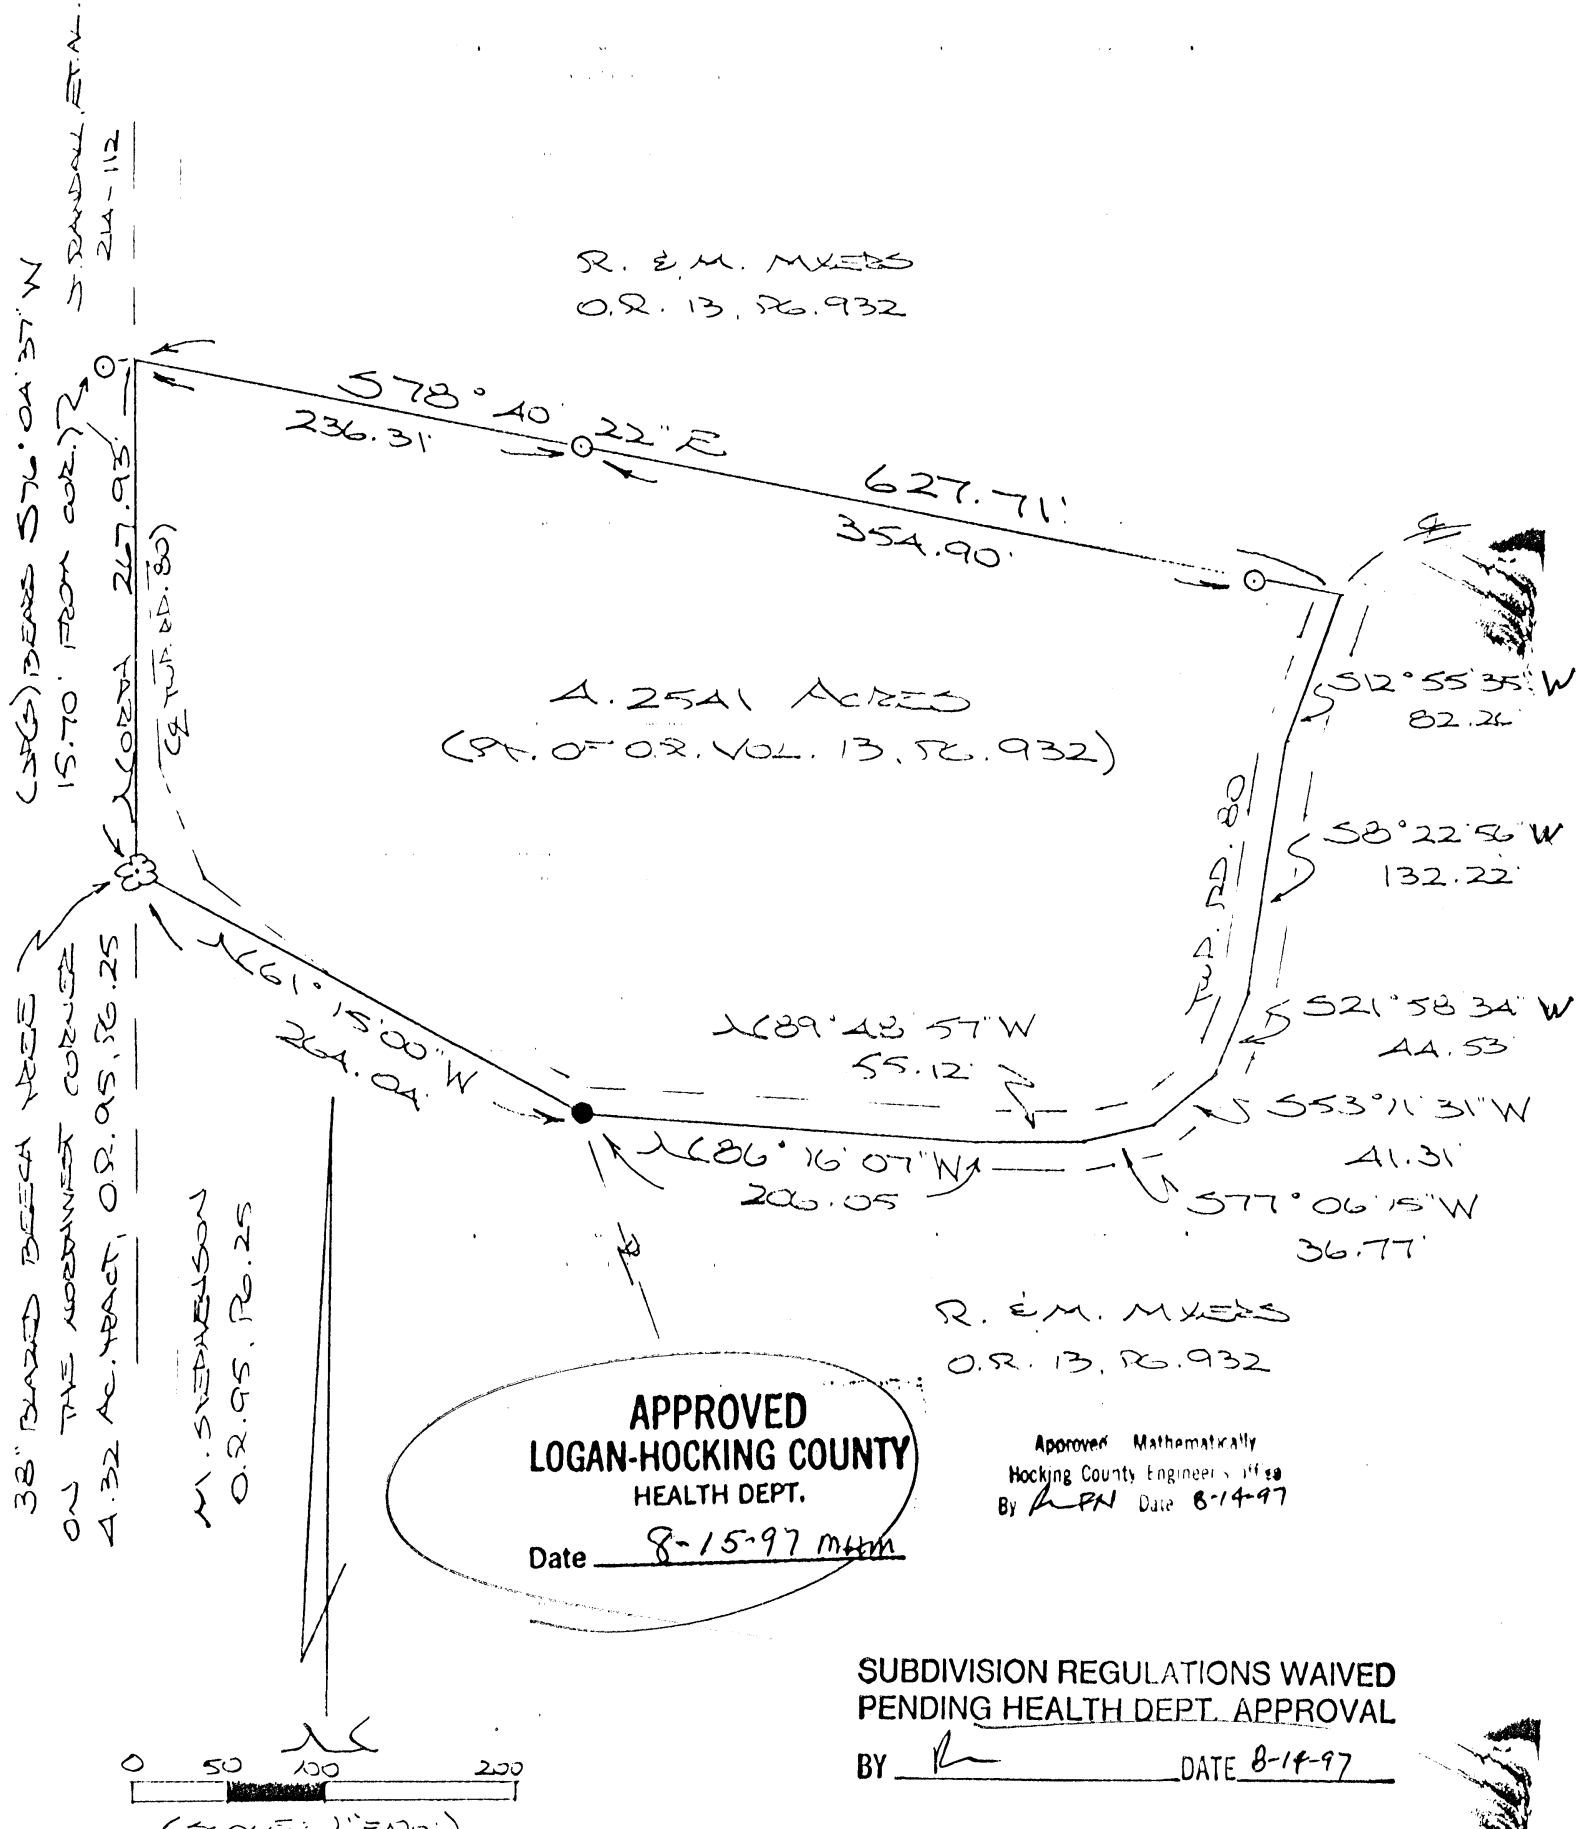 J. RANDALL, ET. AL.
214-112
(SPG) BEARS S76°04'37"W
15.70' FROM COR.)
R. & M. MYERS
O.R. 13, PG. 932
S78°40'22"E
236.31'
627.71'
354.90'
NORTH 267.93'
(℄ TWP. RD. 80)
℄
4.2541 ACRES
(PT. OF O.R. VOL. 13, PG. 932)
S12°55'35"W
82.26'
TWP. RD. 80
S8°22'56"W
132.22'
S21°58'34"W
44.53'
S53°11'31"W
41.31'
S77°06'15"W
36.77'
N89°48'57"W
55.12'
N86°16'07"W
206.05
N61°15'00"W
264.04'
38" BLAZED BEECH TREE
ON THE NORTHWEST CORNER
4.32 AC. TRACT, O.R. 95, PG. 25
M. STEPHENSON
O.R. 95, PG. 25
R. & M. MYERS
O.R. 13, PG. 932
APPROVED
LOGAN-HOCKING COUNTY
HEALTH DEPT.
Date 8-15-97 MHM
Approved Mathematically
Hocking County Engineer's Office
By RPN Date 8-14-97
SUBDIVISION REGULATIONS WAIVED
PENDING HEALTH DEPT. APPROVAL
BY DATE 8-14-97
N
0 50 100 200